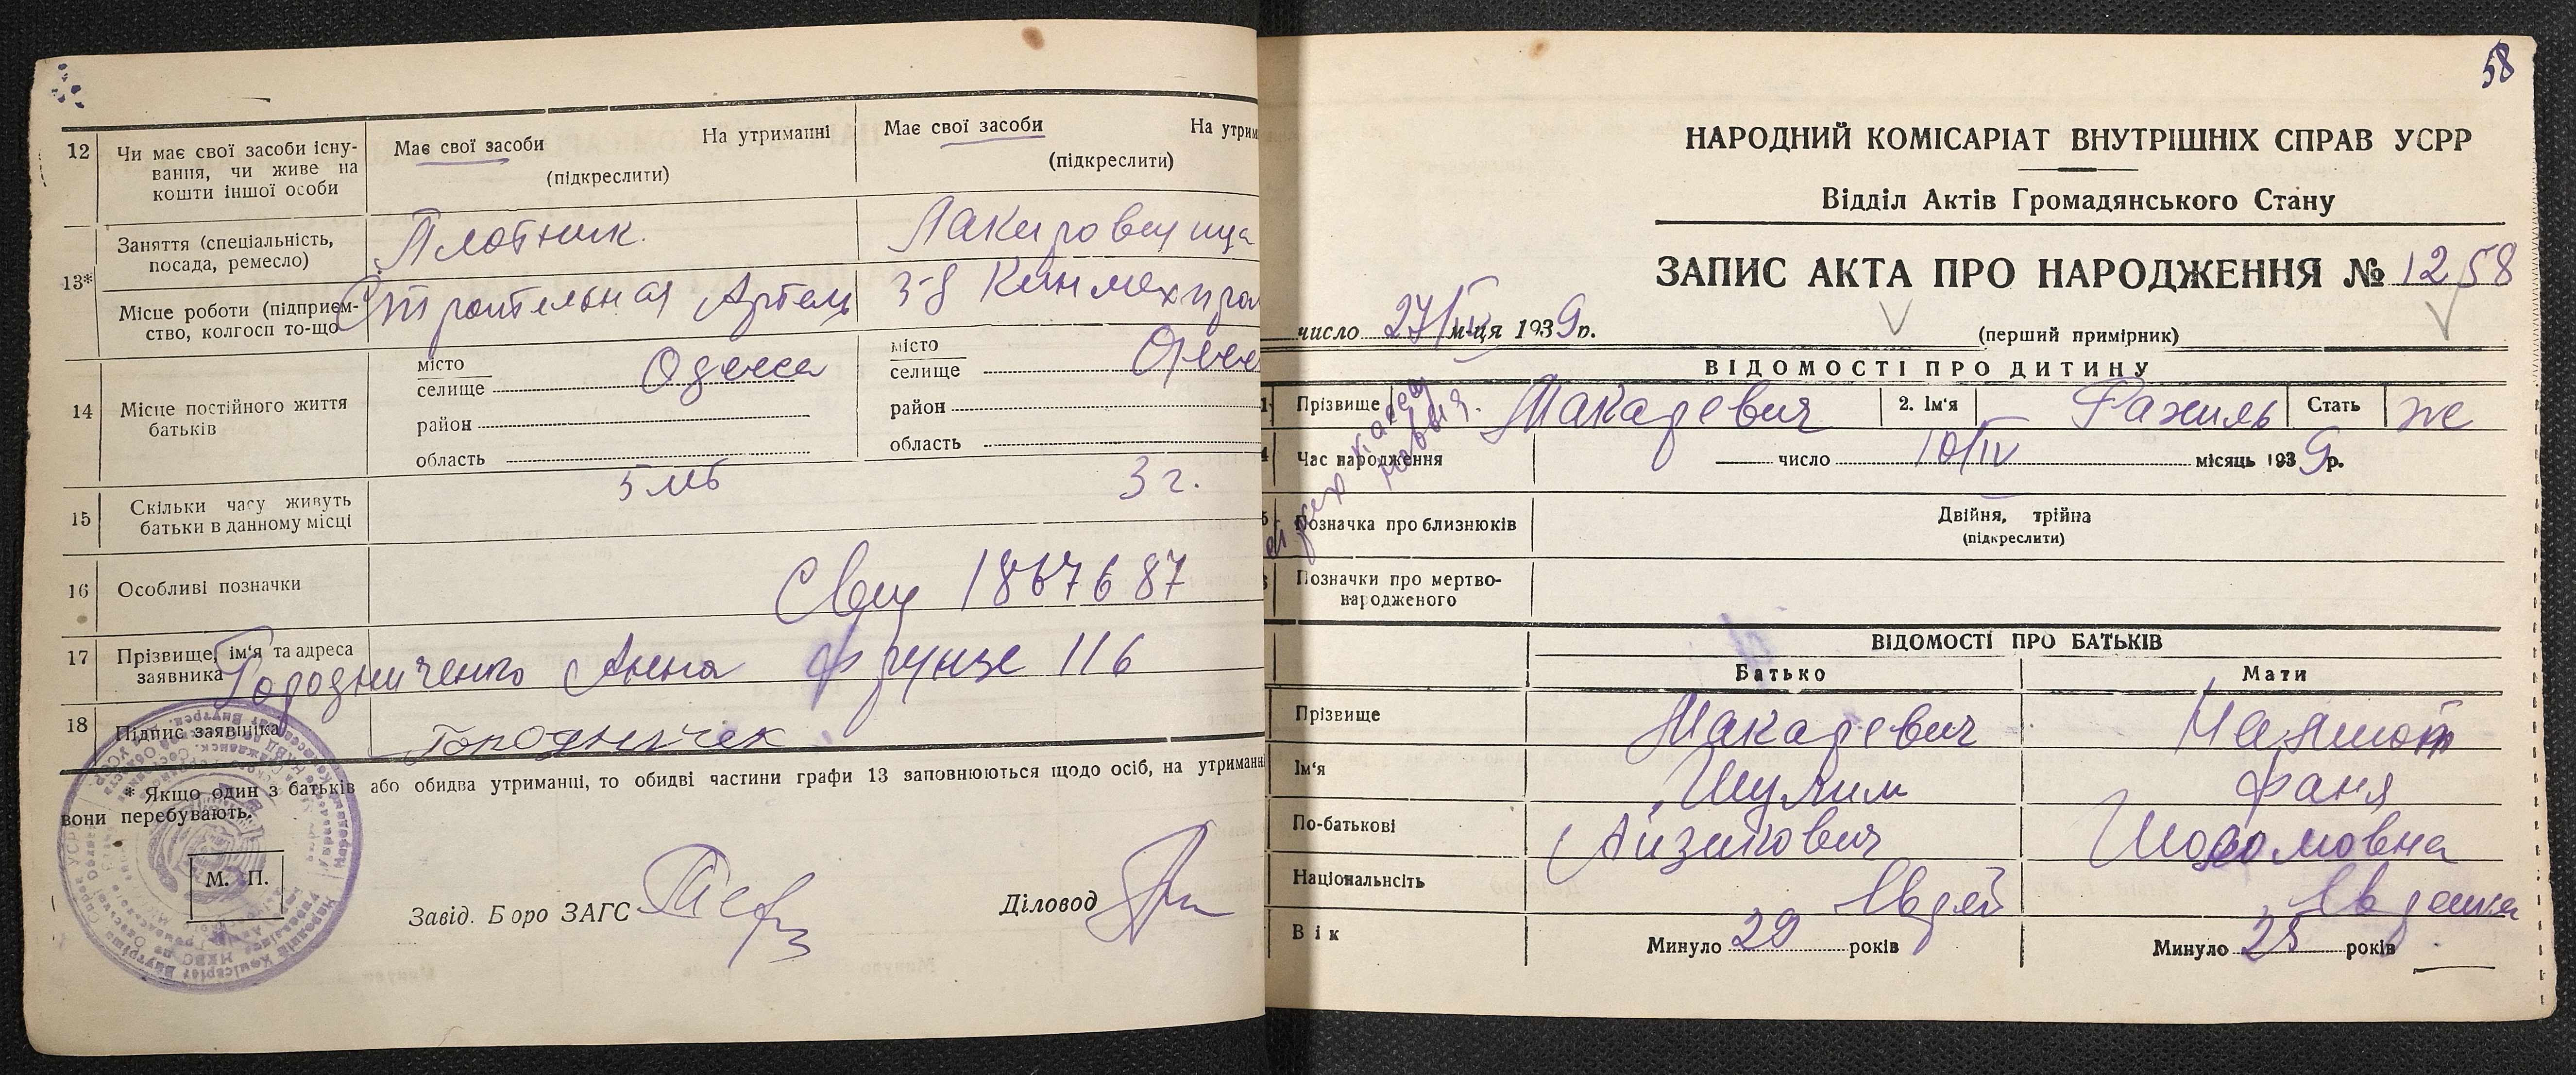 12
Чи має свої засоби існу-
вання, чи живе на
кошти іншої особи
Має свої засоби На утриманні
(підкреслити)
Має свої засоби На утрим
(підкреслити)
13*
Заняття (спеціальність,
посада, ремесло)
Плотник.
Лакировщица
Місце роботи (підприєм-
ство, колгосп то-що
Строительная Артель
з-д Кинмехпром
14
Місце постійного життя
батьків
місто
селище Одесса
район
область
місто
селище Одесс
район
область
15
Скільки часу живуть
батьки в данному місці
5 мб
3 г.
16
Особливі позначки
Свид 1867687
17
Прізвище, ім'я та адреса
заявника
Городниченко Анна Фрунзе 116
18
Підпис заявника
Городничек
* Якщо один з батьків або обидва утриманці, то обидві частини графи 13 заповнюються щодо осіб, на утриманн
вони перебувають.
М. П.
Завід. Бюро ЗАГС
Діловод
58
НАРОДНИЙ КОМІСАРІАТ ВНУТРІШНІХ СПРАВ УСРР
Відділ Актів Громадянського Стану
ЗАПИС АКТА ПРО НАРОДЖЕННЯ № 1258
число 27/IV м-ця 1939р.
(перший примірник)
ВІДОМОСТІ ПРО ДИТИНУ
Прізвище Макаревич 2. Ім'я Рахиль Стать ж
Час народження
число 10/IV місяць 1939р.
Позначка про близнюків
Двійня, трійна
(підкреслити)
Позначки про мертво-
народженого
ВІДОМОСТІ ПРО БАТЬКІВ
Батько Мати
Прізвище Макаревич
Ім'я Шулим Фаня
По-батькові Айзикович Шоломовна
Національність Еврей Еврейка
Вік Минуло 29 років Минуло 25 років